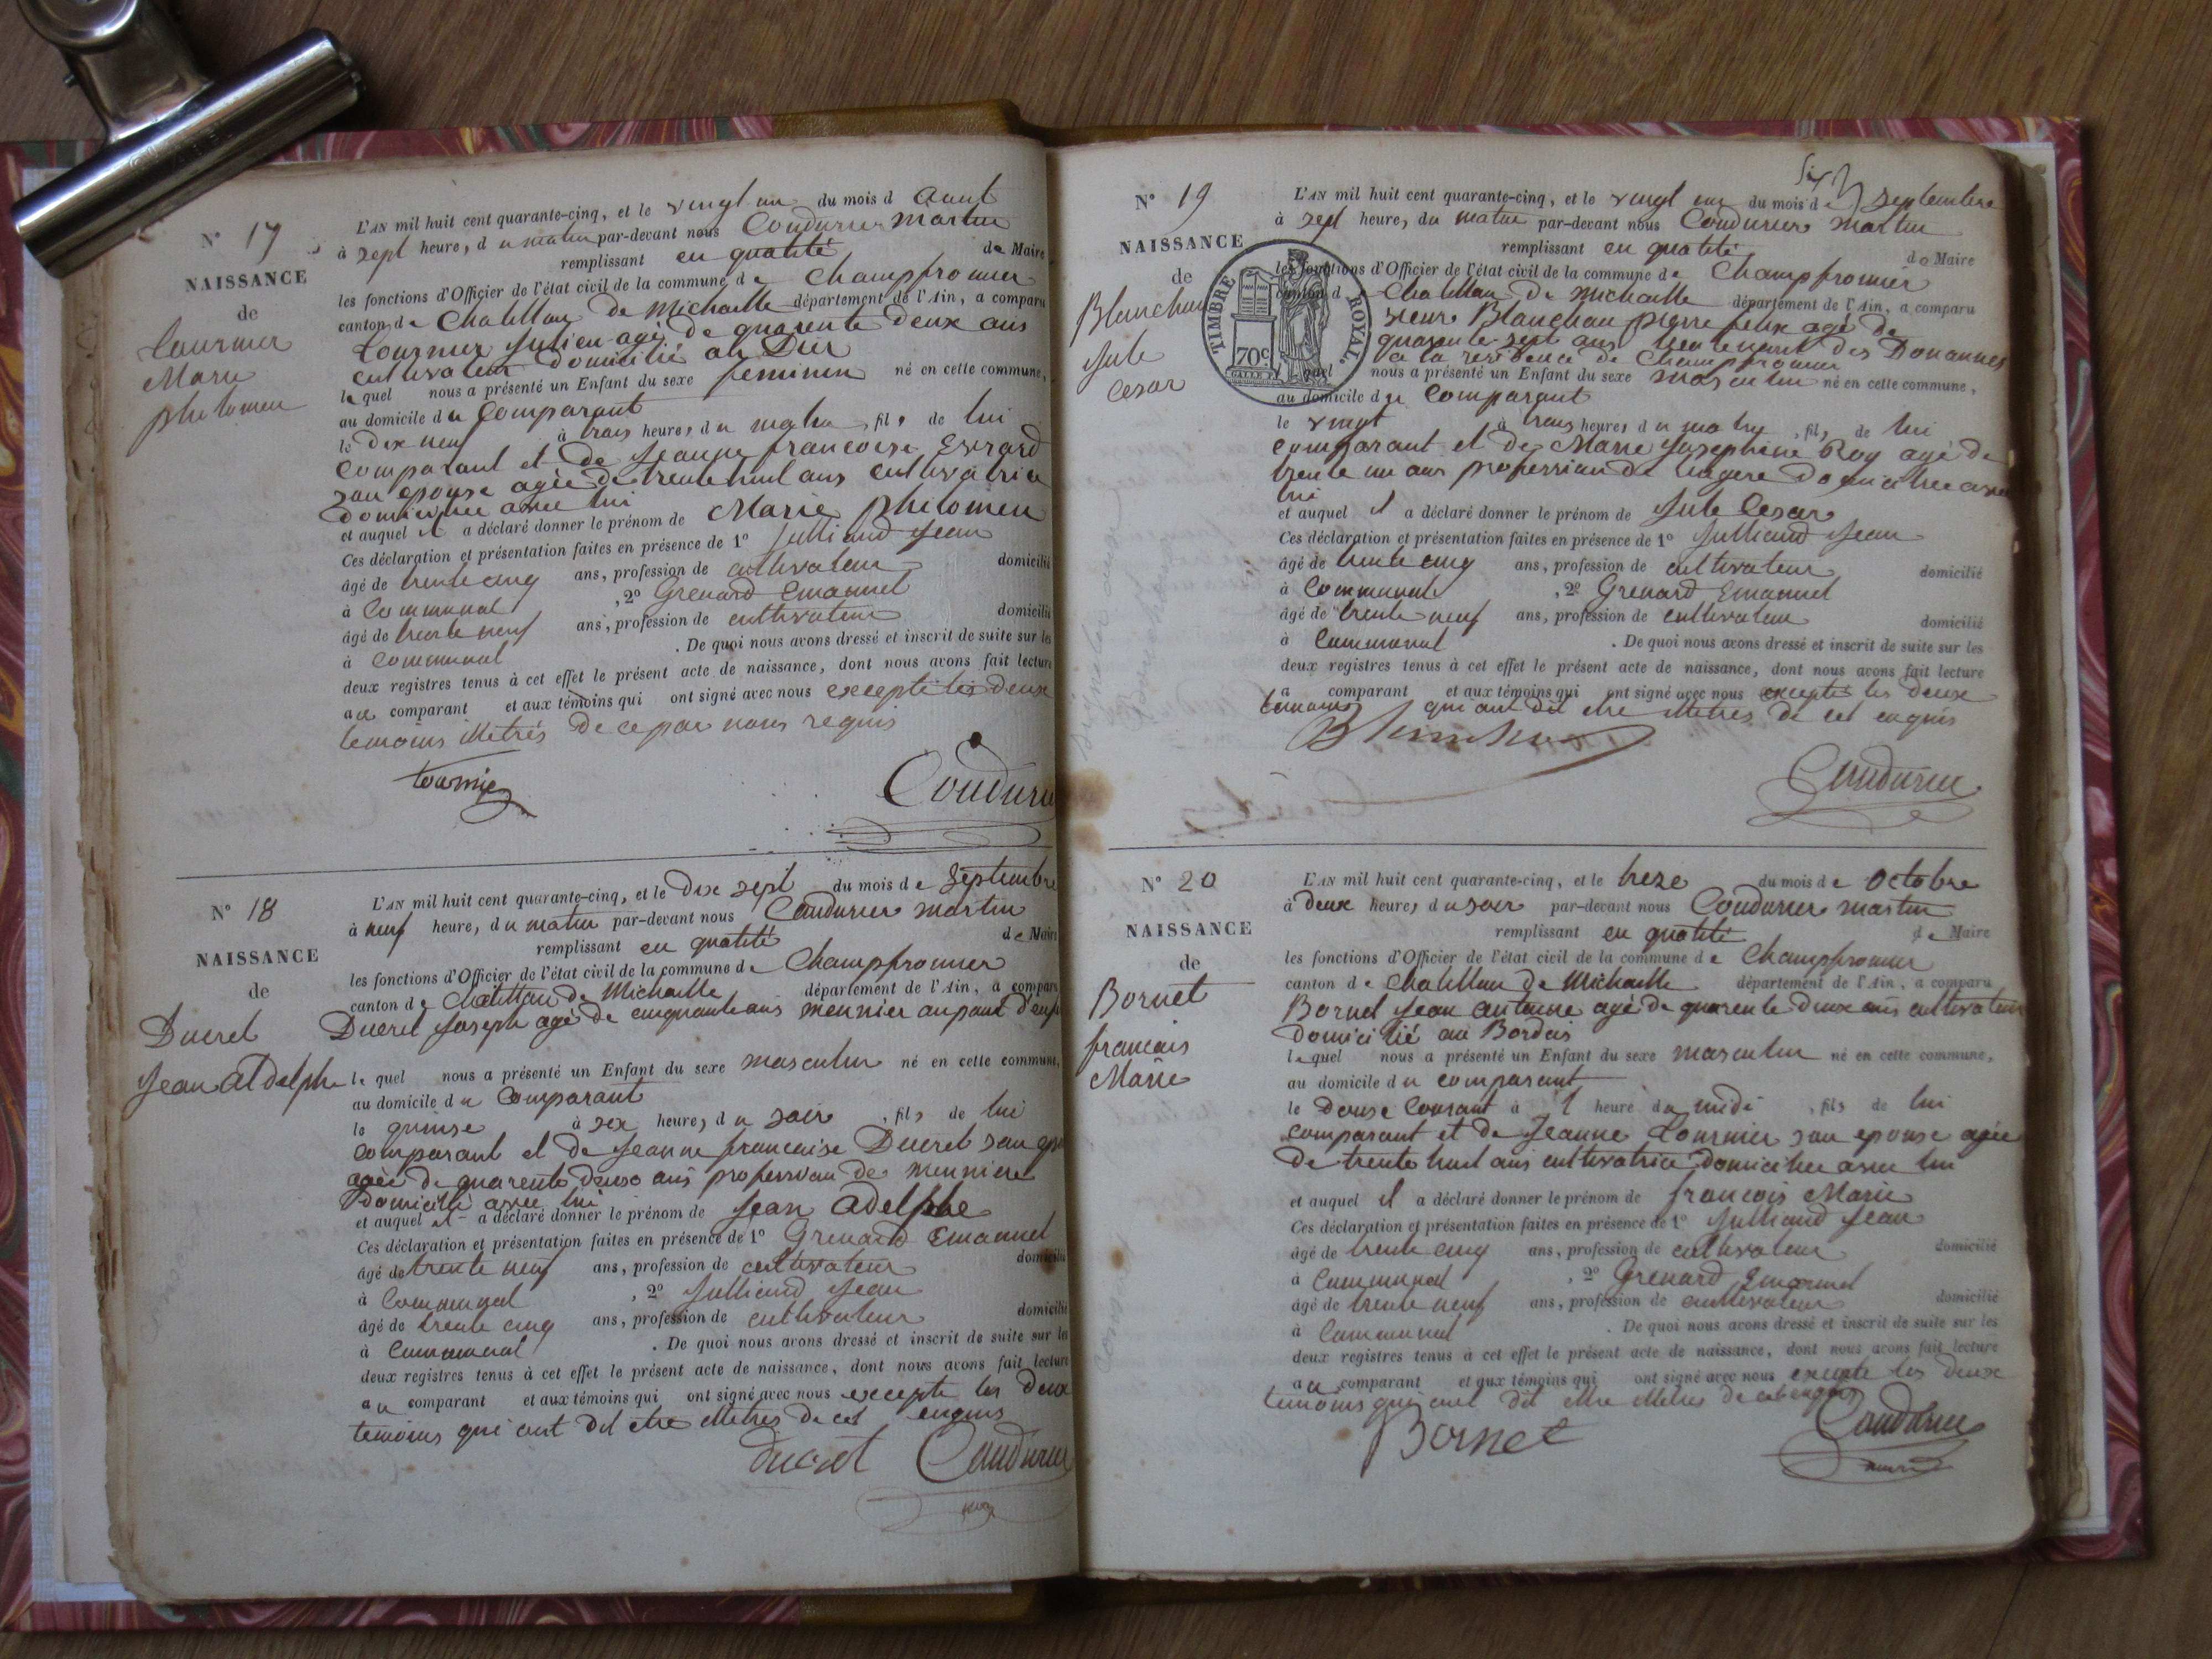 N° 17
NAISSANCE
de
Tournier
Marie
philomen
L'AN mil huit cent quarante-cinq, et le vingt un du mois d aout
à sept heure, du matin par-devant nous Coudurier martin
remplissant en qualité de Maire
les fonctions d'Officier de l'état civil de la commune de Champfromier
canton de Chatillon De Michaille département de l'Ain, a comparu
Tournier Julien agé De quarente Deux ans
cultivateur Domicilié au Dur
lequel nous a présenté un Enfant du sexe feminin né en cette commune,
au domicile du Comparant
le Dix neuf à trois heures du matin, fils de lui
Comparant et De Jeanne francoise Evrard
son epouse agée De trente huit ans cultivatrice
Domiciliee avec lui
et auquel il a déclaré donner le prénom de Marie philomen
Ces déclaration et présentation faites en présence de 1° Julliand Jean
âgé de trente cinq ans, profession de cultivateur domicilié
à Communal , 2° Grenard Emanuel
âgé de trente neuf ans, profession de cultivateur domicilié
à Communal . De quoi nous avons dressé et inscrit de suite sur les
deux registres tenus à cet effet le présent acte de naissance, dont nous avons fait lecture
au comparant et aux témoins qui ont signé avec nous excepté les deux
temoins illetrés De ce par nous requis
Tournier
Coudurier
N° 18
NAISSANCE
de
Ducret
Jean Adelphe
L'AN mil huit cent quarante-cinq, et le Dix sept du mois de Septembre
à neuf heure, du matin par-devant nous Coudurier martin
remplissant en qualité de Maire
les fonctions d'Officier de l'état civil de la commune de Champfromier
canton de Chatillon De Michaille département de l'Ain, a comparu
Ducret Joseph agé De cinquante ans meunier au pont D'enfer
lequel nous a présenté un Enfant du sexe masculin né en cette commune,
au domicile du Comparant
le quinse à six heures du soir , fils de lui
comparant et De Jeanne francoise Ducret son
agée De quarente Deux ans profession De meuniere
Domicilié avec lui
et auquel il a déclaré donner le prénom de Jean Adelphe
Ces déclaration et présentation faites en présence de 1° Grenard Emanuel
âgé de trente neuf ans, profession de cultivateur domicilié
à Communal , 2° Julliand Jean
âgé de trente cinq ans, profession de cultivateur domicilié
à Communal . De quoi nous avons dressé et inscrit de suite sur les
deux registres tenus à cet effet le présent acte de naissance, dont nous avons fait lecture
au comparant et aux témoins qui ont signé avec nous excepte les Deux
temoins qui ont Dit etre illetres De cet enquis
Ducret Coudurier
N° 19
NAISSANCE
de
Blanchau
Jule
Cesar
TIMBRE ROYAL.
70c
L'AN mil huit cent quarante-cinq, et le vingt un du mois de septembre
à sept heure, du matin par-devant nous Coudurier martin
remplissant en qualité de Maire
les fonctions d'Officier de l'état civil de la commune de Champfromier
canton de Chatillon De Michaille département de l'Ain, a comparu
sieur Blanchau pierre felix agé De
quarente sept ans lieutenant Des Douannes
a la residence De Champfromier
lequel nous a présenté un Enfant du sexe masculin né en cette commune,
au domicile du Comparant
le vingt à trois heures du matin, fils de lui
comparant et De Marie Josephine Roy agé De
trente un ans profession De lingere Domiciliee avec
lui
et auquel il a déclaré donner le prénom de Jule Cesar
Ces déclaration et présentation faites en présence de 1° Julliand Jean
âgé de trente cinq ans, profession de cultivateur domicilié
à Communal , 2° Grenard Emanuel
âgé de trente neuf ans, profession de cultivateur domicilié
à Communal . De quoi nous avons dressé et inscrit de suite sur les
deux registres tenus à cet effet le présent acte de naissance, dont nous avons fait lecture
a comparant et aux témoins qui ont signé avec nous excepté les deux
temoins qui ont Dit etre illetres De cet enquis
Coudurier
N° 20
NAISSANCE
de
Bornet
francois
Marie
L'AN mil huit cent quarante-cinq, et le treze du mois de Octobre
à deux heures du soir par-devant nous Coudurier martin
remplissant en qualité de Maire
les fonctions d'Officier de l'état civil de la commune de Champfromier
canton de Chatillon De Michaille département de l'Ain, a comparu
Bornet Jean Antoine agé De quarente Deux ans cultivateur
Domicilié au Bordas
lequel nous a présenté un Enfant du sexe masculin né en cette commune,
au domicile du comparant
le Douse Courant à 1 heure du midi , fils de lui
comparant et De Jeanne Tournier son epouse agée
De trente huit ans cultivatrice Domiciliee avec lui
et auquel il a déclaré donner le prénom de francois Marie
Ces déclaration et présentation faites en présence de 1° Julliand Jean
âgé de trente cinq ans, profession de cultivateur domicilié
à Communal , 2° Grenard Emanuel
âgé de trente neuf ans, profession de cultivateur domicilié
à Communal . De quoi nous avons dressé et inscrit de suite sur les
deux registres tenus à cet effet le présent acte de naissance, dont nous avons fait lecture
au comparant et aux témoins qui ont signé avec nous excepte les Deux
temoins qui ont Dit etre illetres De cet enquis
Bornet Coudurier